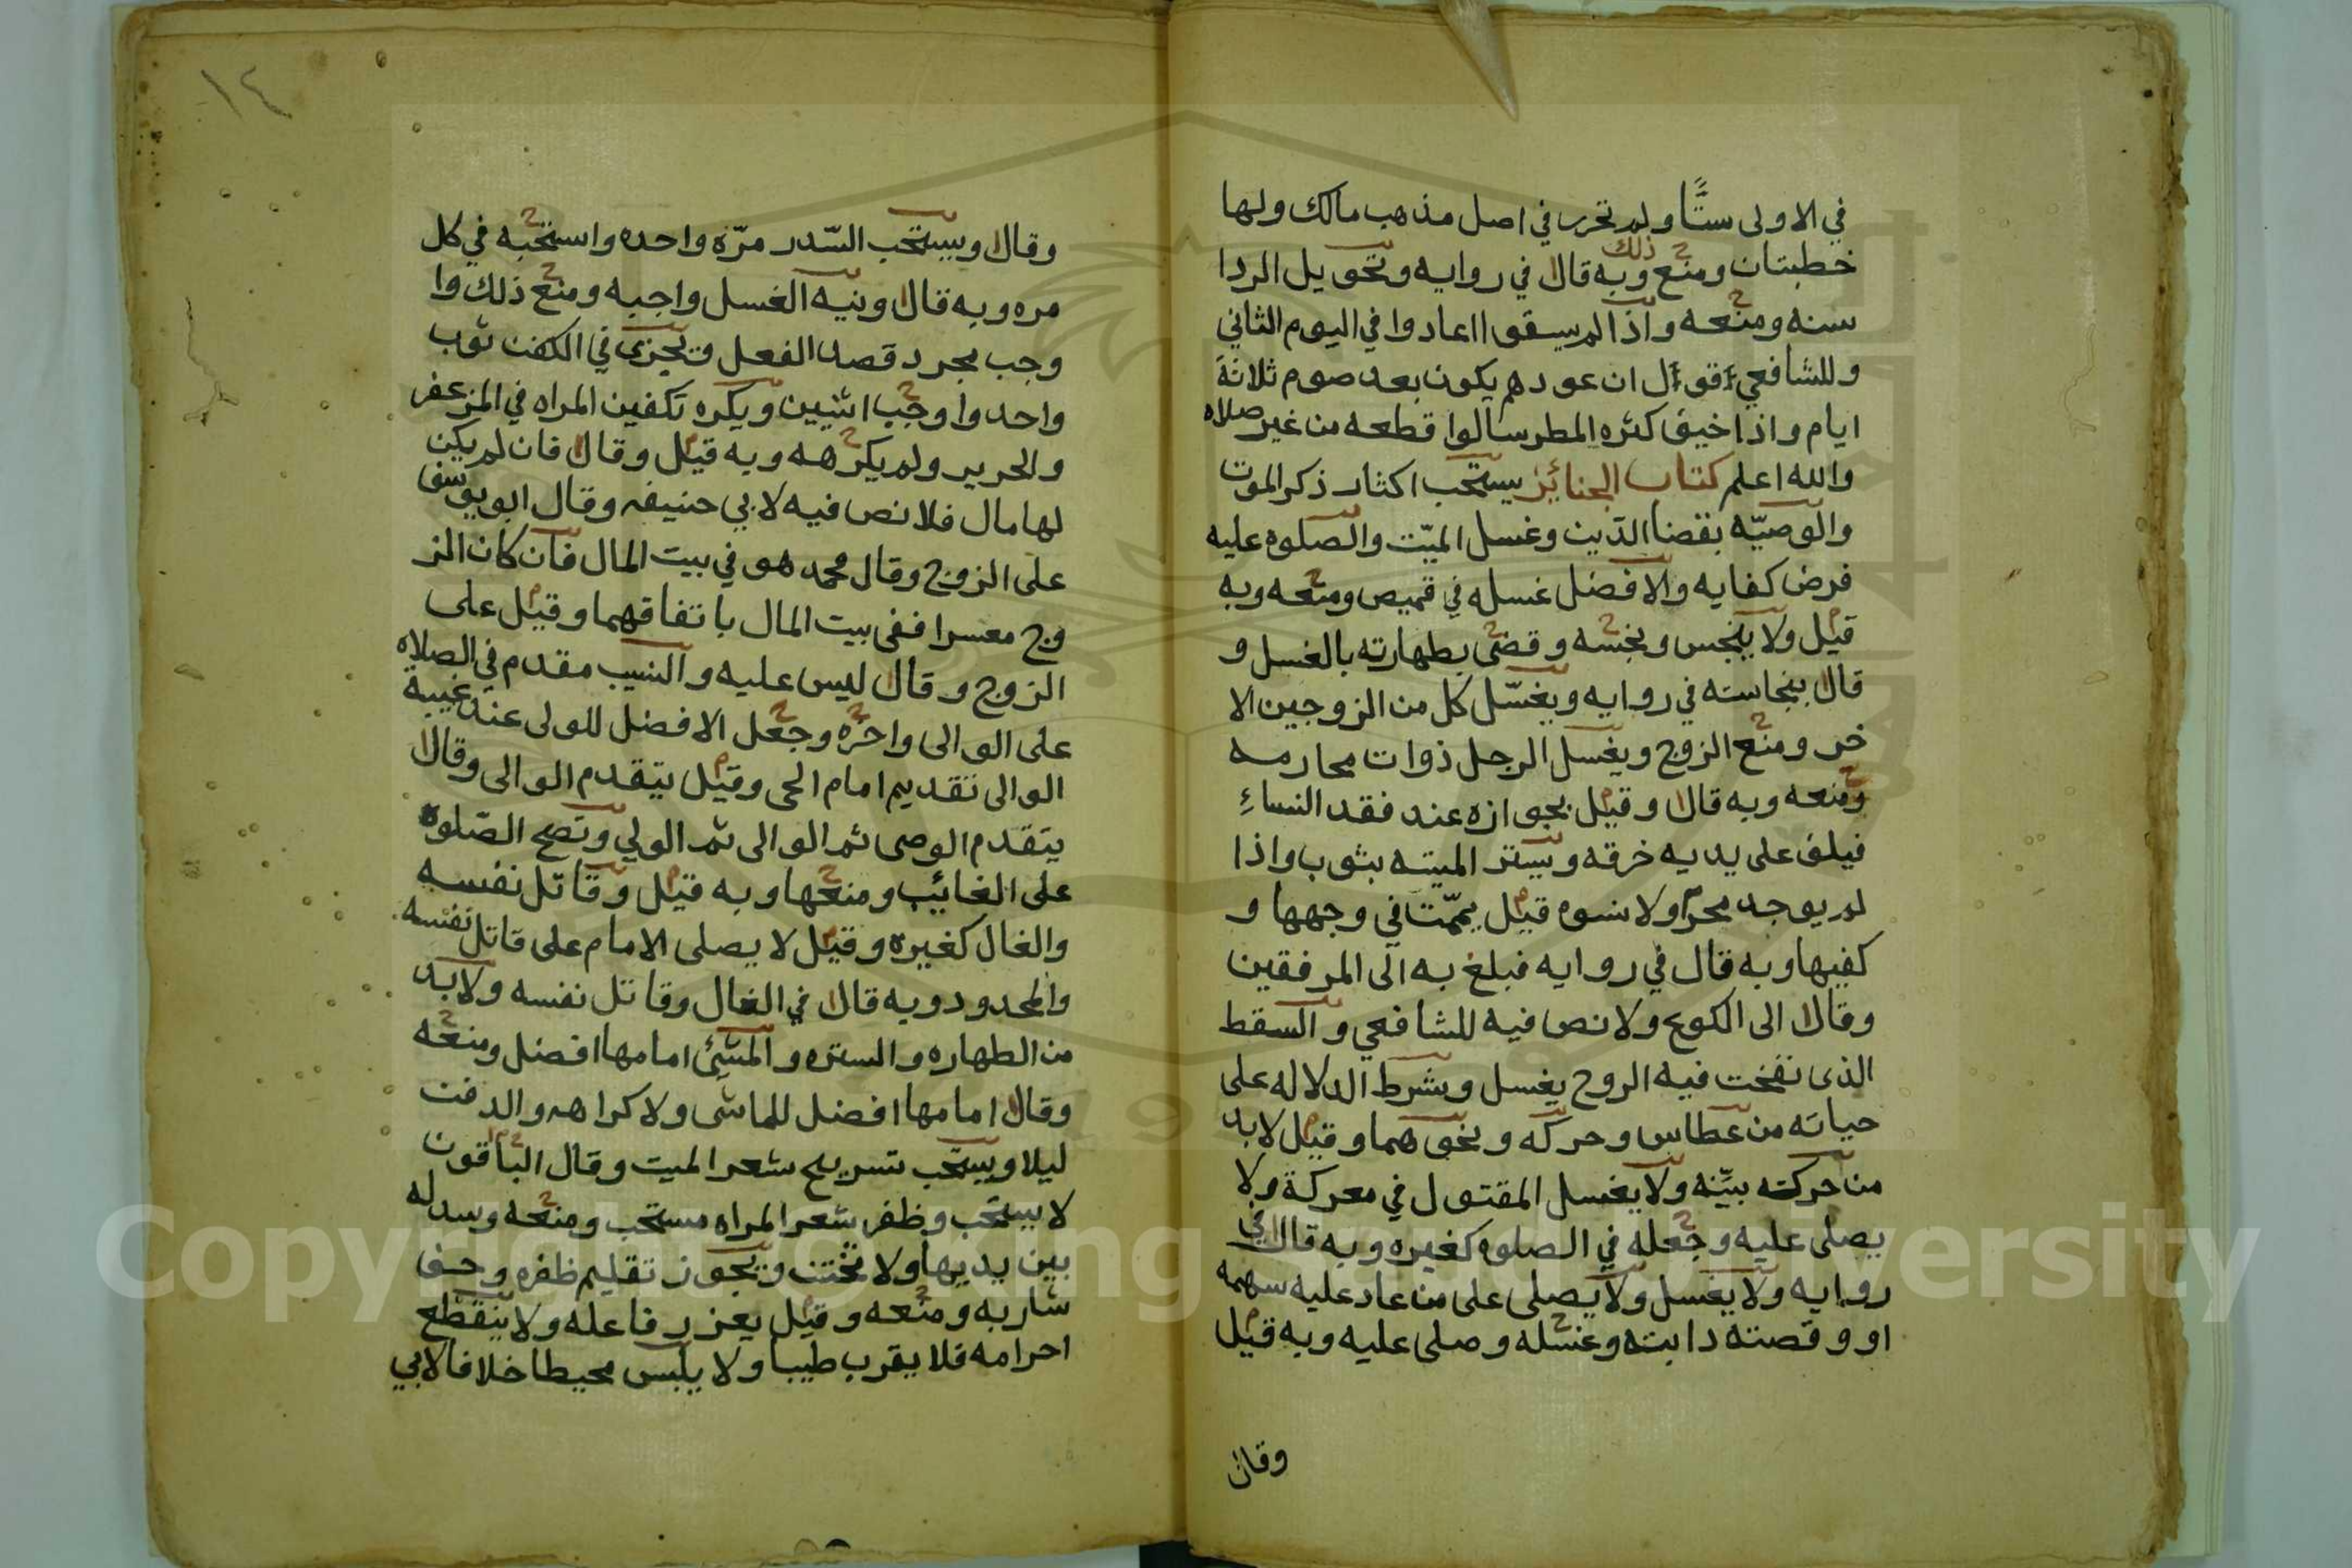 في الاولى ستًّا ولم تحرر في اصل مذهب مالك ولها
خطبتان ومنع ذلك وبه قال في روايه وتحويل الردا
سنه ومنعه واذا لم يسقوا اعادوا في اليوم الثاني
وللشافعي قول ان عودهم يكون بعد صوم ثلاثة
ايام واذا خيف كثره المطر سالوا قطعه من غير صلاه
والله اعلم كتاب الجنائز يستحب اكثار ذكر الموت
والوصيّه بقضا الدين وغسل الميّت والصلوه عليه
فرض كفايه والافضل غسله في قميص ومنعه وبه
قيل ولا ينجس ونجسه وقضى بطهارته بالغسل و
قال بنجاسته في روايه ويغسّل كل من الزوجين الا
خر ومنع الزوج ويغسل الرجل ذوات محارمه
ومنعه وبه قال وقيل بجوازه عند فقد النساءِ
فيلف على يديه خرقه ويستر الميته بثوب واذا
لم يوجد محرم ولا نسوه قيل يممّت في وجهها و
كفيها وبه قال في روايه فبلغ به الى المرفقين
وقال الى الكوع ولا نص فيه للشافعي والسقط
الذى نفخت فيه الروح يغسل وشرط الدلاله على
حياته من عطاس وحركه ونحوهما وقيل لابد
من حركته بيّنه ولا يغسل المقتول في معركة ولا
يصلى عليه وجعله في الصلوه كغيره وبه قال في
روايه ولا يغسل ولا يصلى على من عاد عليه سهمه
او وقصته دابته وغسله وصلى عليه وبه قيل
وقال
١٤
وقال ويستحب السّدر مرّه واحده واستحبه في كل
مره وبه قال ونيه الغسل واجبه ومنع ذلك وا
وجب مجرد قصد الفعل ويجزى في الكفن ثوب
واحد واوجب اثنين ويكره تكفين المراه في المزعفر
والحرير ولم يكرهه وبه قيل وقال فان لم يكن
لها مال فلا نص فيه لابي حنيفه وقال ابو يوسف
على الزوج وقال محمد هو في بيت المال فان كان الز
وج معسرا ففى بيت المال باتفاقهما وقيل على
الزوج وقال ليس عليه والنسيب مقدم في الصلاه
على الوالى واخره وجعل الافضل للولى عند غيبة
الوالى تقديم امام الحى وقيل يتقدم الوالى وقال
يتقدم الوصى ثم الوالى ثم الولي وتصح الصّلوة
على الغائب ومنعها وبه قيل وقاتل نفسه
والغال كغيره وقيل لا يصلى الامام على قاتل نفسه
والمحدود وبه قال في الغال وقاتل نفسه ولابد
من الطهاره والستره والمشئ امامها افضل ومنعه
وقال امامها افضل للماشى ولا كراهه والدفن
ليلا ويستحب تسريح شعر الميت وقال الباقون
لا يستحب وظفر شعر المراه مستحب ومنعه وسدله
بين يديها ولا يختن ويجوز تقليم ظفره وحف
شاربه ومنعه وقيل يعزر فاعله ولا ينقطع
احرامه فلا يقرب طيبا ولا يلبس محيطا خلافا لابي
Copyright © King Saud University